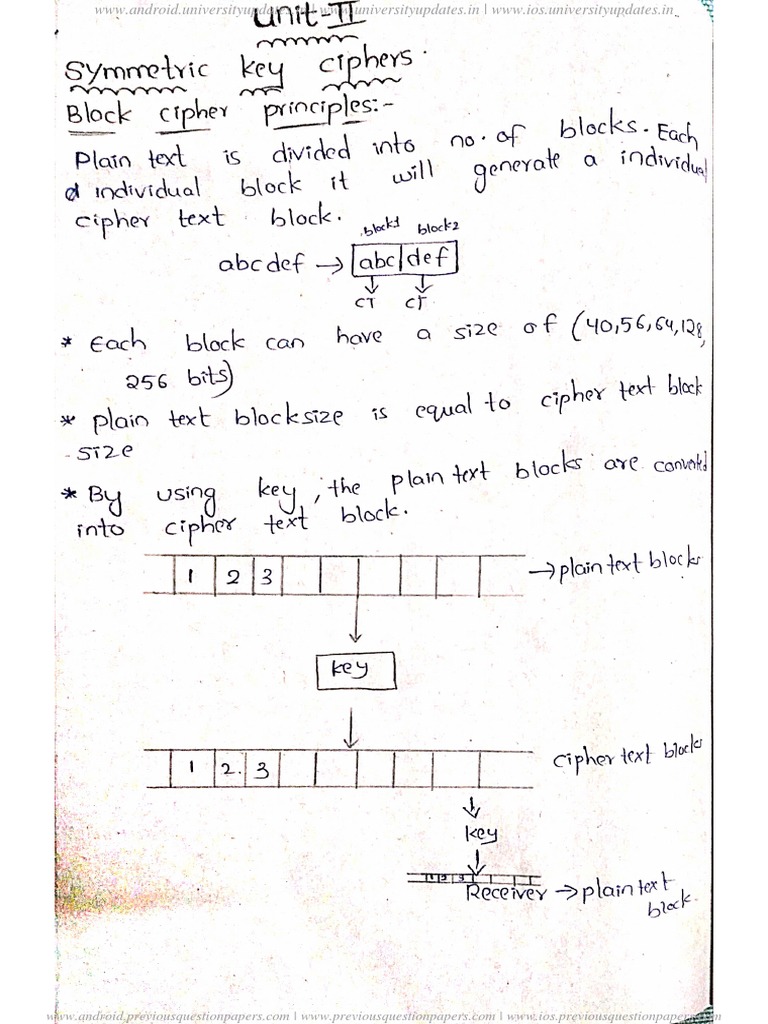 www.android.universityupdates.in | www.universityupdates.in | www.ios.universityupdates.in
Unit-II
Symmetric key ciphers.
Block cipher principles:-
Plain text is divided into no. of blocks. Each
individual block it will generate a individual
cipher text block.
block1 block2
abcdef → abc def
CT CT
* Each block can have a size of (40,56,64,128,
256 bits)
* plain text blocksize is equal to cipher text block
-size
* By using key, the plain text blocks are converted
into cipher text block.
1 2 3 → plain text blocks
key
1 2. 3 cipher text blocks
key
1 2 3
Receiver → plain text
block.
www.android.previousquestionpapers.com | www.previousquestionpapers.com | www.ios.previousquestionpapers.com